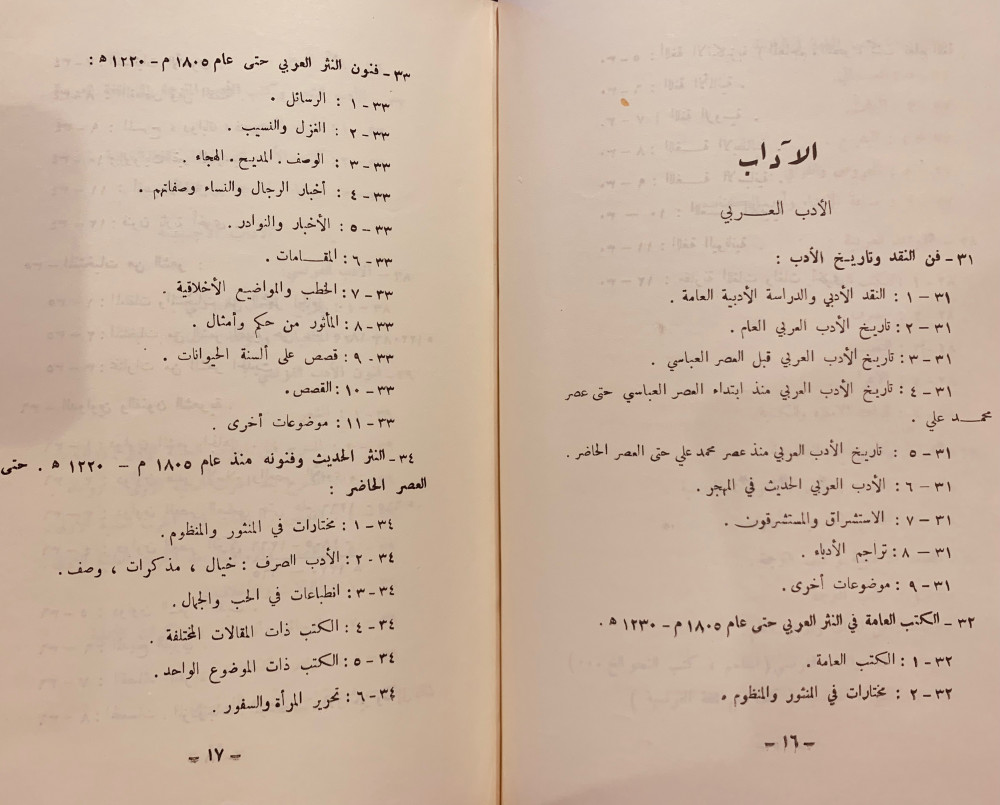 الآداب
الأدب العربي
٣١ - فن النقد وتاريخ الأدب :
٣١ - ١ : النقد الأدبي والدراسة الأدبية العامة .
٣١ - ٢ : تاريخ الأدب العربي العام .
٣١ - ٣ : تاريخ الأدب العربي قبل العصر العباسي .
٣١ - ٤ : تاريخ الأدب العربي منذ ابتداء العصر العباسي حتى عصر
محمد علي .
٣١ - ٥ : تاريخ الأدب العربي منذ عصر محمد علي حتى العصر الحاضر .
٣١ - ٦ : الأدب العربي الحديث في المهجر .
٣١ - ٧ : الاستشراق والمستشرقون .
٣١ - ٨ : تراجم الأدباء .
٣١ - ٩ : موضوعات أخرى .
٣٢ - الكتب العامة في النثر العربي حتى عام ١٨٠٥ م - ١٢٣٠ ه .
٣٢ - ١ : الكتب العامة .
٣٢ - ٢ : مختارات في المنثور والمنظوم .
- ١٦ -
٣٣ - فنون النثر العربي حتى عام ١٨٠٥ م - ١٢٢٠ ه :
٣٣ - ١ : الرسائل .
٣٣ - ٢ : الغزل والنسيب .
٣٣ - ٣ : الوصف . المديح . الهجاء .
٣٣ - ٤ : أخبار الرجال والنساء وصفاتهم .
٣٣ - ٥ : الأخبار والنوادر .
٣٣ - ٦ : المقامات .
٣٣ - ٧ : الخطب والمواضيع الأخلاقية .
٣٣ - ٨ : المأثور من حكم وأمثال .
٣٣ - ٩ : قصص على ألسنة الحيوانات .
٣٣ - ١٠ : القصص .
٣٣ - ١١ : موضوعات أخرى .
٣٤ - النثر الحديث وفنونه منذ عام ١٨٠٥ م - ١٢٢٠ ه . حتى
العصر الحاضر :
٣٤ - ١ : مختارات في المنثور والمنظوم .
٣٤ - ٢ : الأدب الصرف : خيال ، مذكرات ، وصف .
٣٤ - ٣ : انطباعات في الحب والجمال .
٣٤ - ٤ : الكتب ذات المقالات المختلفة .
٣٤ - ٥ : الكتب ذات الموضوع الواحد .
٣٤ - ٦ : تحرير المرأة والسفور .
- ١٧ -